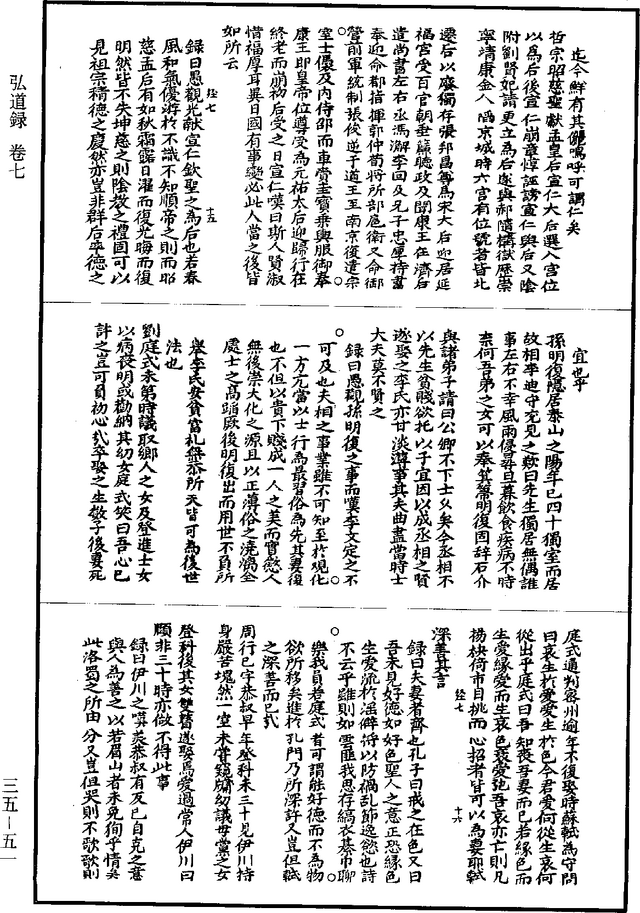 弘道録 卷七
迄今鮮有其儷嗚呼可謂仁矣
哲宗昭慈聖獻孟皇后宣仁大后選入宮位
以為后後宣仁崩章惇誣謗宣仁與后又陰
附劉賢妃請更立為后遂與郝隨構獄歷崇
寧靖康金人陷京城時六宮有位號者皆北
遷后以廢獨存張邦昌尊為宋大后迎居延
福宮受百官朝垂簾聽政及聞康王在濟后
遣尚書左右丞馮澥李回及兄子忠厚持書
奉迎命都指揮郭仲荀將所部扈衛又命御
營前軍統制張俊逆于道王至南京後遣宗
室士㒟及內侍邵而車賫圭寶乘輿服御奉
康王即皇帝位尊受為元祐太后迎歸行在
終老而崩初后受之日宣仁嘆曰斯人賢淑
惜福厚耳異日國有事變必此人當之後皆
如所云
錄曰愚觀光獻宣仁欽聖之為后也若春
經七 十五
風和氣優游於不識不知順帝之則而昭
慈孟后有如秋霜露日濯而復光晦而復
明然皆不失坤慈之則陰教之禮固可以
見祖宗積德之慶然亦豈非群后率德之
宜也乎
孫明復隱居泰山之陽年已四十獨室而居
故相李迪守兗見之歎曰先生獨居無偶誰
事左右不幸風雨侵晷旦暮飲食疾病不時
柰何吾弟之女可以奉箕箒明復固辭石介
與諸弟子請曰公卿不下士久矣今丞相不
以先生貧賤欲托以子宜因以成丞相之賢
遂娶之李氏亦甘淡薄事其夫曲盡當時士
大夫莫不賢之
錄曰愚觀孫明復之事而嘆李文定之不
可及也夫相之事業雖不可知至於覌化
一方允當以士行為最習俗為先其妻復
也不但以貴下賤成一人之美而實慾人
無後崇大化之源且以正薄俗之澆漓全
處士之高蹈厥後明復出而用世不負所
舉李氏女貧富札槩悉所天皆可為後世
法也
劉庭式未第時議取鄉人之女及登進士女
以病喪明或勸納其幼女庭式笑曰吾心已
許之豈可負初心哉卒娶之生數子後妻死
庭式通判密州逾年不復娶時蘇軾為守問
曰哀生於愛愛生於色今君愛何從生哀何
從出乎庭式曰吾知喪吾妻而已若緣色而
生愛緣愛而生哀色衰愛弛吾哀亦亡則凡
揚袂倚市目挑而心招者皆可以為妻耶軾
深善其言
經七 十六
錄曰夫妻者齊也孔子曰戒之在色又曰
吾未見好德如好色聖人之意正恐緣色
生愛流於淫僻將以防禍亂節逸慾也詩
不云乎雖則如雲匪我思存縞衣綦巾聊
樂我員者庭式者可謂能好德而不為物
欲所移矣進於孔門乃所深許又豈但軾
之深善而已哉
周行已字恭叔早年登科未三十見伊川持
身嚴苦塊然一室未嘗窺牖幼議毋黨之女
登科後其女雙瞽遂娶焉愛過常人伊川曰
頤非三十時亦做不得此事
錄曰伊川之嘆羨恭叔有反已自克之意
與人為善之以若眉山者未免狥乎情矣
此洛蜀之所由分又豈但哭則不歌歌則
三五—五一